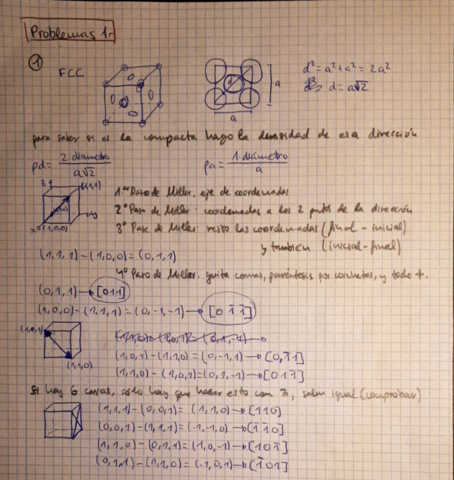 Problemas 1.-
1
FCC
d² = a² + a² = 2a²
d = a√2
a
a
para saber si es la compacta hago la densidad de esa dirección
ρd = 2 diámetro / a√2
ρa = 1 diámetro / a
1er Paso de Miller: eje de coordenadas
2º Paso de Miller: coordenadas a los 2 puntos de la dirección
3º Paso de Miller: resto las coordenadas (final - inicial)
y también (inicial - final)
(1,1,1) - (1,0,0) = (0,1,1)
4º Paso de Miller: quita comas, paréntesis por corchetes, y todo +.
(0,1,1) → [011]
(1,0,0) - (1,1,1) = (0,-1,-1) → [0 1̄ 1̄]
(1,0,1)
(1,1,0)
(1,0,1) - (1,1,0) = (0,-1,1) → [0,1̄1]
(1,1,0) - (1,0,1) = (0,1,-1) → [011̄]
Si hay 6 caras, solo hay que hacer esto con 3, salen igual (comprobar)
(1,1,1) - (0,0,1) = (1,1,0) → [110]
(0,0,1) - (1,1,1) = (-1,-1,0) → [1̄1̄0]
(1,1,0) - (0,1,1) = (1,0,-1) → [101̄]
(0,1,1) - (1,1,0) = (-1,0,1) → [1̄01]